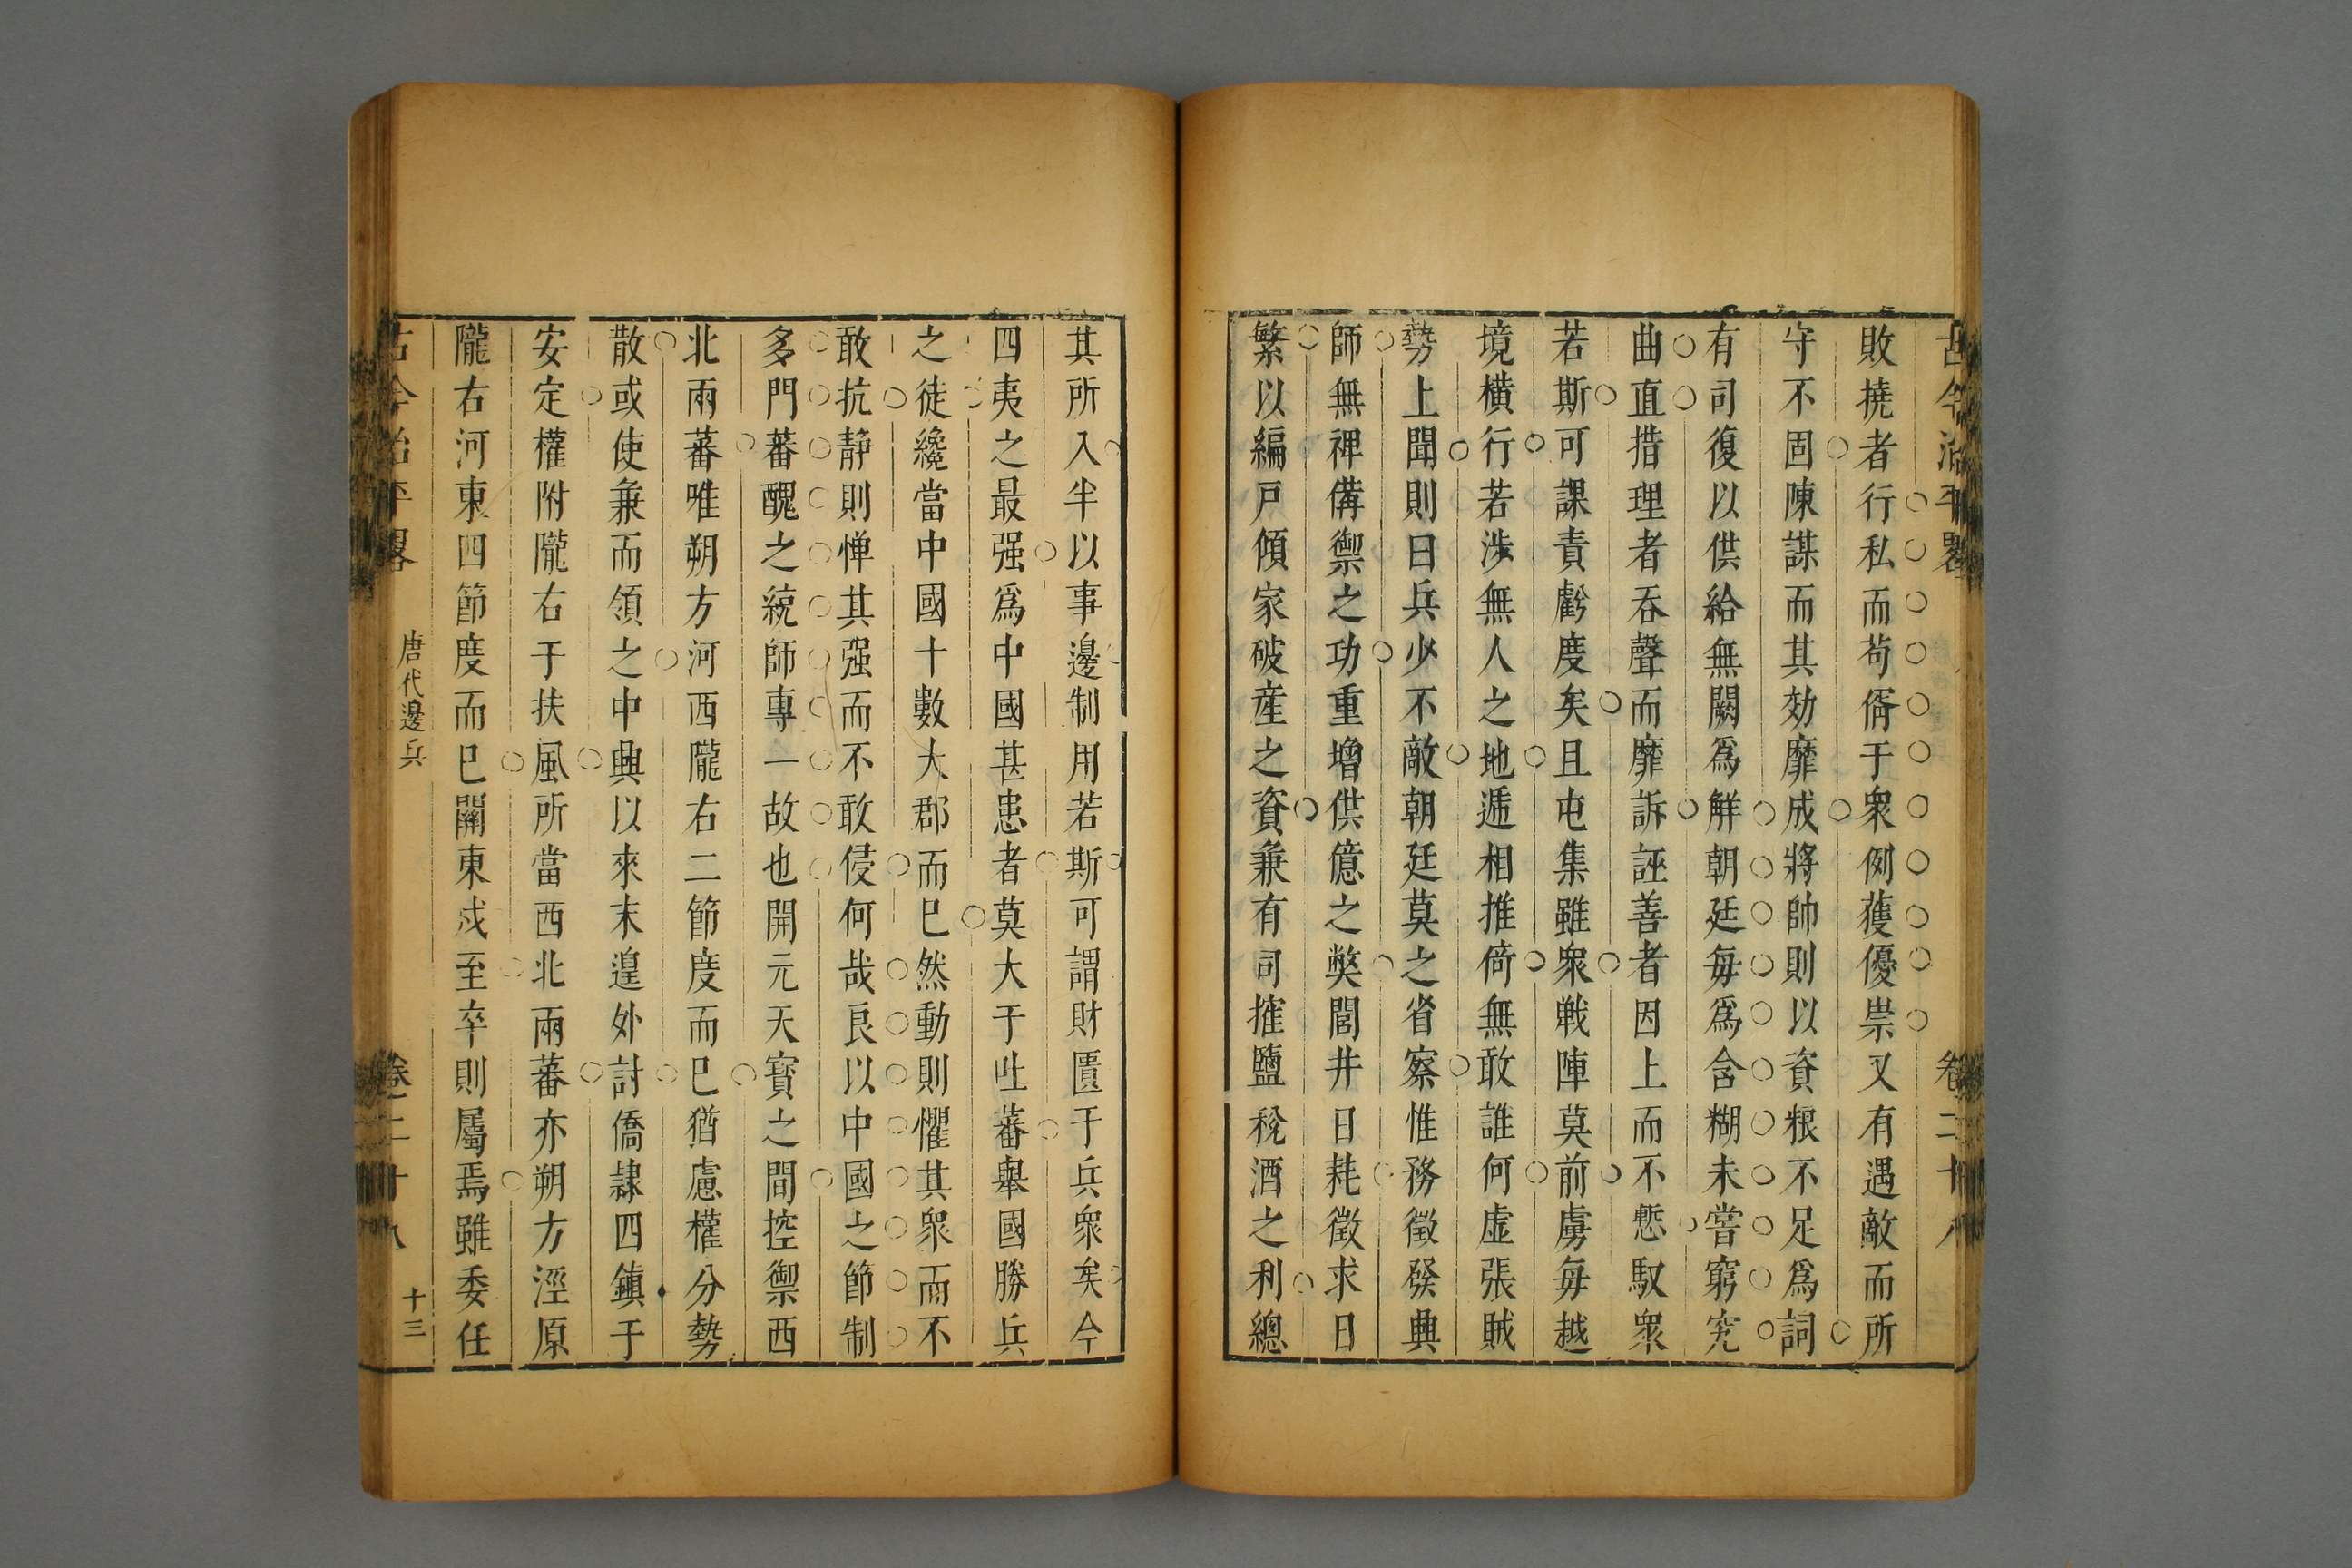 古今治平畧 卷二十八
敗撓者行私而茍媠于衆例獲優崇又有遇敵而所
守不固陳謀而其効靡成將帥則以資粮不足爲詞
有司復以供給無闕爲解朝廷每爲含糊未甞窮究
曲直措理者吞聲而靡訴誣善者因上而不慙馭衆
若斯可課責虧度矣且屯集雖衆戰陣莫前虜每越
境橫行若涉無人之地遞相推倚無敢誰何虛張賊
勢上聞則曰兵少不敵朝廷莫之省察惟務徵發興
師無裨備禦之功重增供億之獘閭井日耗徵求日
繁以編戸傾家破産之資兼有司搉鹽稅酒之利總
其所入半以事邊制用若斯可謂財匱于兵衆矣今
四夷之最强爲中國甚患者莫大于吐蕃舉國勝兵
之徒纔當中國十數大郡而已然動則懼其衆而不
敢抗靜則憚其强而不敢侵何哉良以中國之節制
多門蕃醜之統師專一故也開元天寶之間控禦西
北兩蕃唯朔方河西隴右二節度而已猶慮權分勢
散或使兼而領之中興以來未遑外討僑隷四鎮于
安定權附隴右于扶風所當西北兩蕃亦朔方涇原
隴右河東四節度而已關東戍至卒則屬焉雖委任
古今治平畧 唐代邊兵 卷二十八 十三